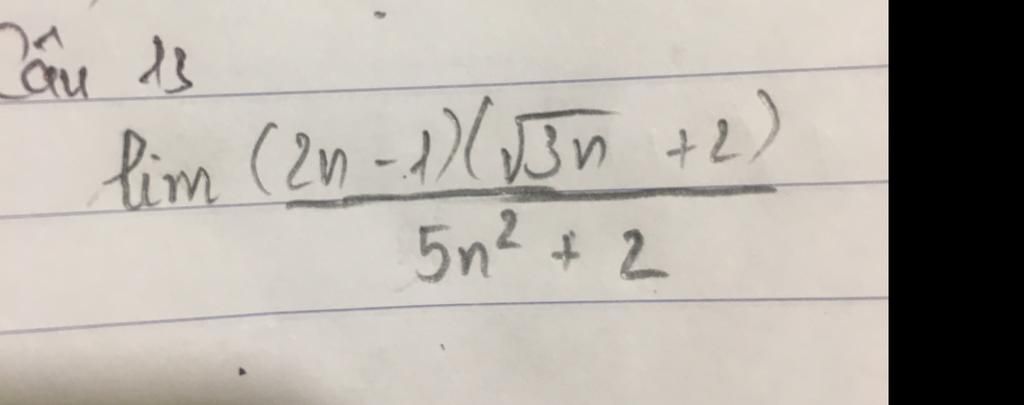 Câu 13
lim (2n - 1)(√3n + 2)
5n² + 2